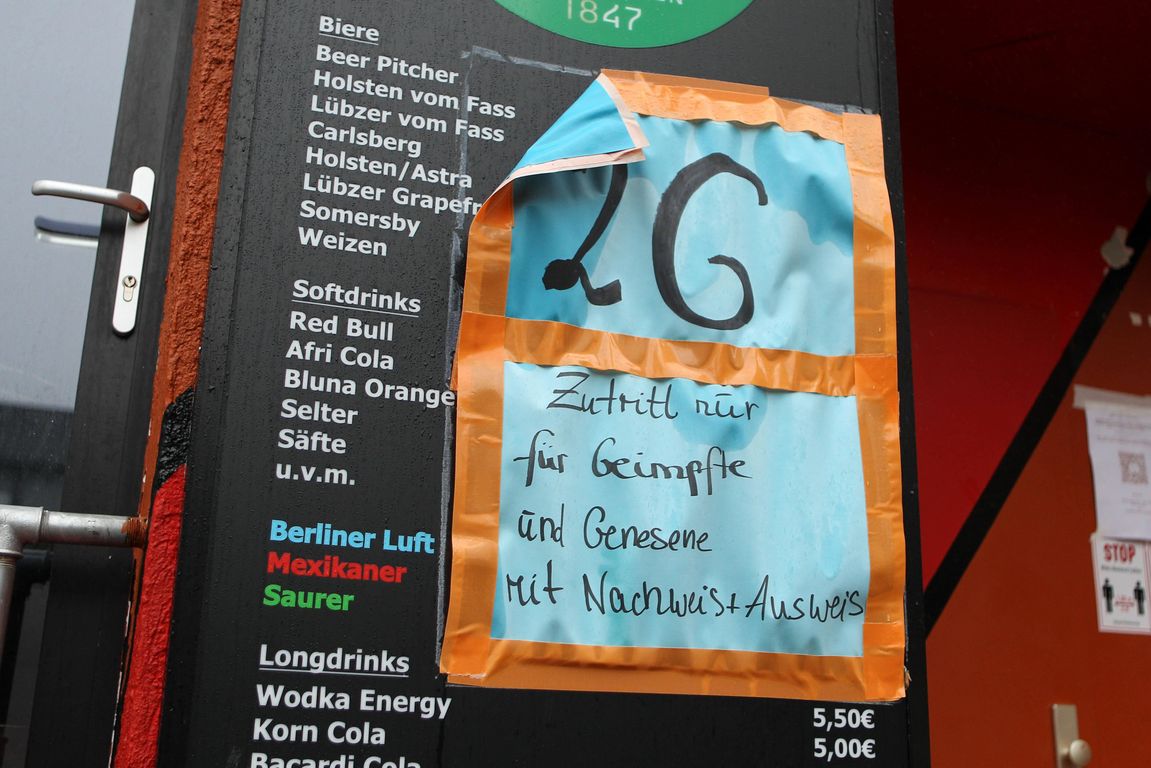 1847
Biere
Beer Pitcher
Holsten vom Fass
Lübzer vom Fass
Carlsberg
Holsten/Astra
Lübzer Grapefr
Somersby
Weizen
Softdrinks
Red Bull
Afri Cola
Bluna Orange
Selter
Säfte
u.v.m.
Berliner Luft
Mexikaner
Saurer
Longdrinks
Wodka Energy
Korn Cola
Bacardi Cola
5,50€
5,00€
2G
Zutritt nur
für Geimpfte
und Genesene
mit Nachweis + Ausweis
STOP